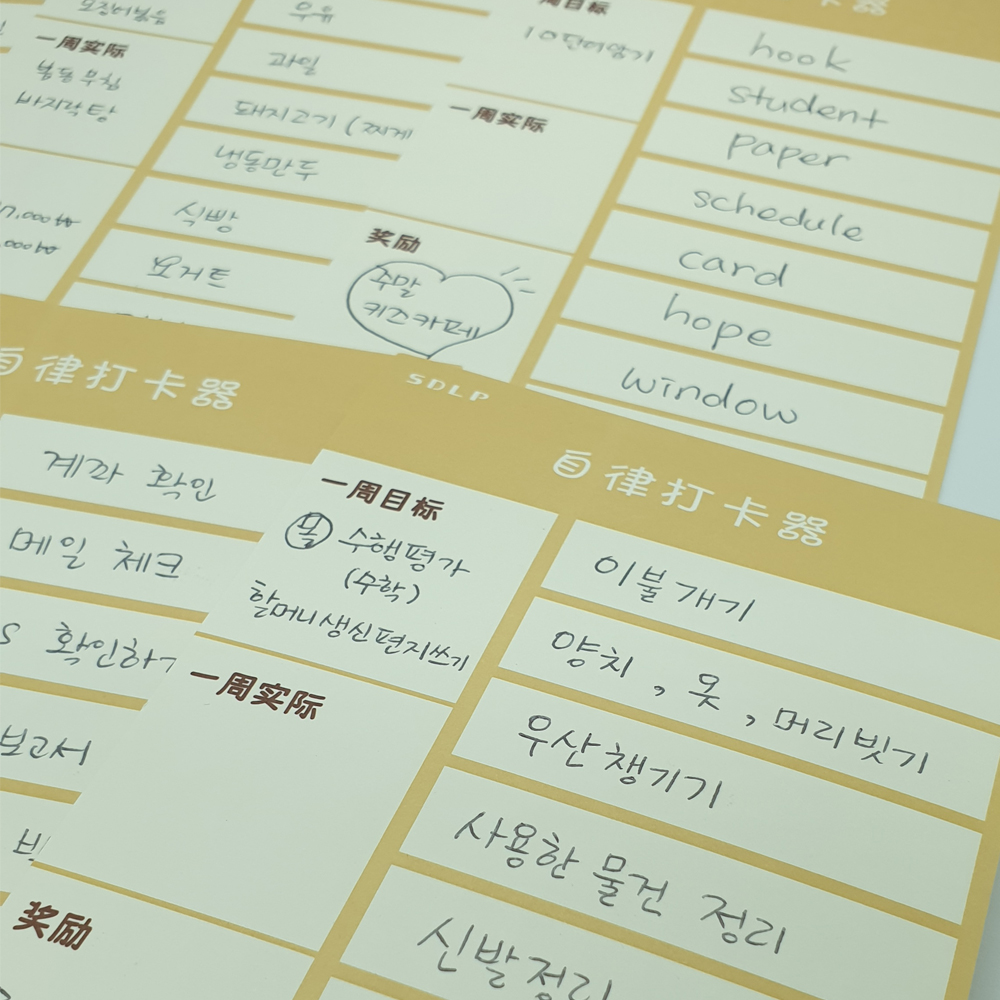 一周实际
불동무침
바지락탕
우유
과일
돼지고기 (찌개
냉동만두
식빵
요거트
周目标
10단어암기
一周实际
奖励
주말
키즈카페
hook
student
paper
schedule
card
hope
window
自律打卡器
계좌 확인
메일 체크
S 확인하기
보고서
SDLP
自律打卡器
一周目标
수행평가
(수학)
할머니생신편지쓰기
一周实际
奖励
이불개기
양치, 옷, 머리빗기
우산챙기기
사용한 물건 정리
신발정리